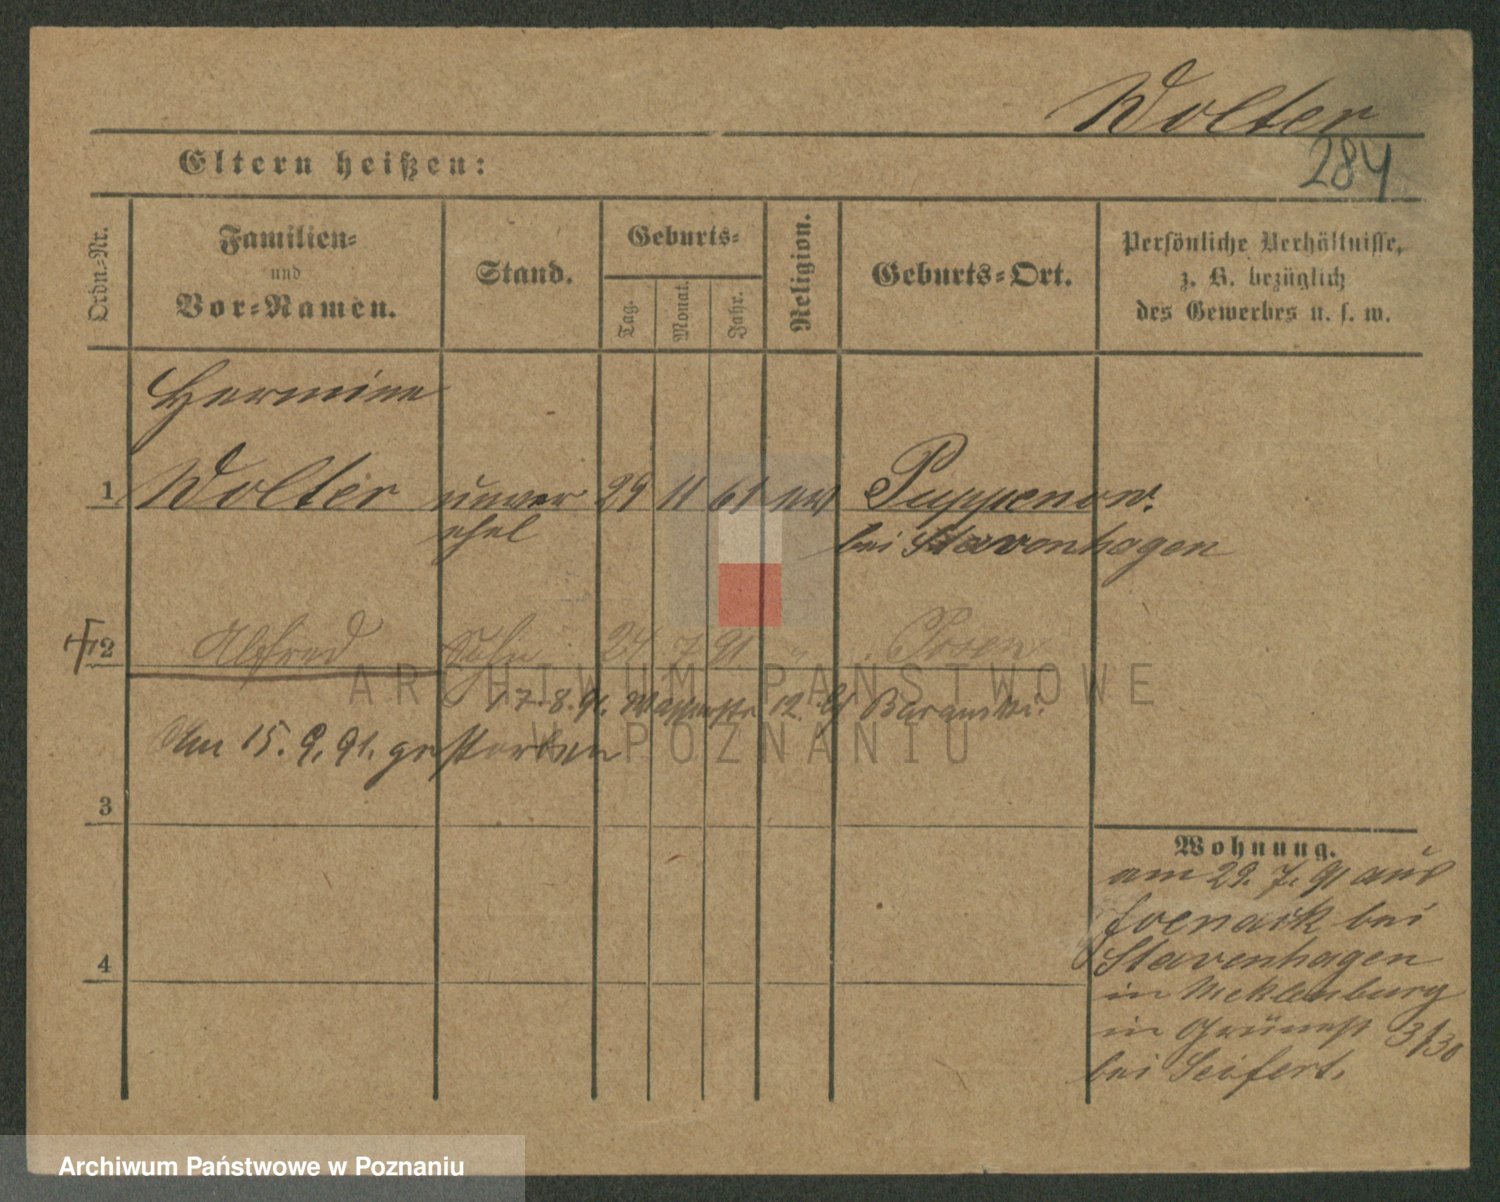 Wolter
284
Eltern heißen:
Ordn.-Nr.
Familien-
und
Vor-Namen.
Stand.
Geburts-
Tag.
Monat.
Jahr.
Religion.
Geburts-Ort.
Persönliche Verhältnisse,
z. B. bezüglich
des Gewerbes u. s. w.
Hermine
1 Wolter unver 29 11 61 Puppenow.
ehel bei Stavenhagen
2 Alfred Sohn 24 7 91. Posen
17.8.91. Wasserstr 12. Baranski.
Am 15. 9. 91. gestorben
3
4
Wohnung.
am 29. 7. 91 aus
Ivenack bei
Stavenhagen
in Meklenburg
in Grünest 3/30
bei Seifert.
ARCHIWUM PAŃSTWOWE
W POZNANIU
Archiwum Państwowe w Poznaniu